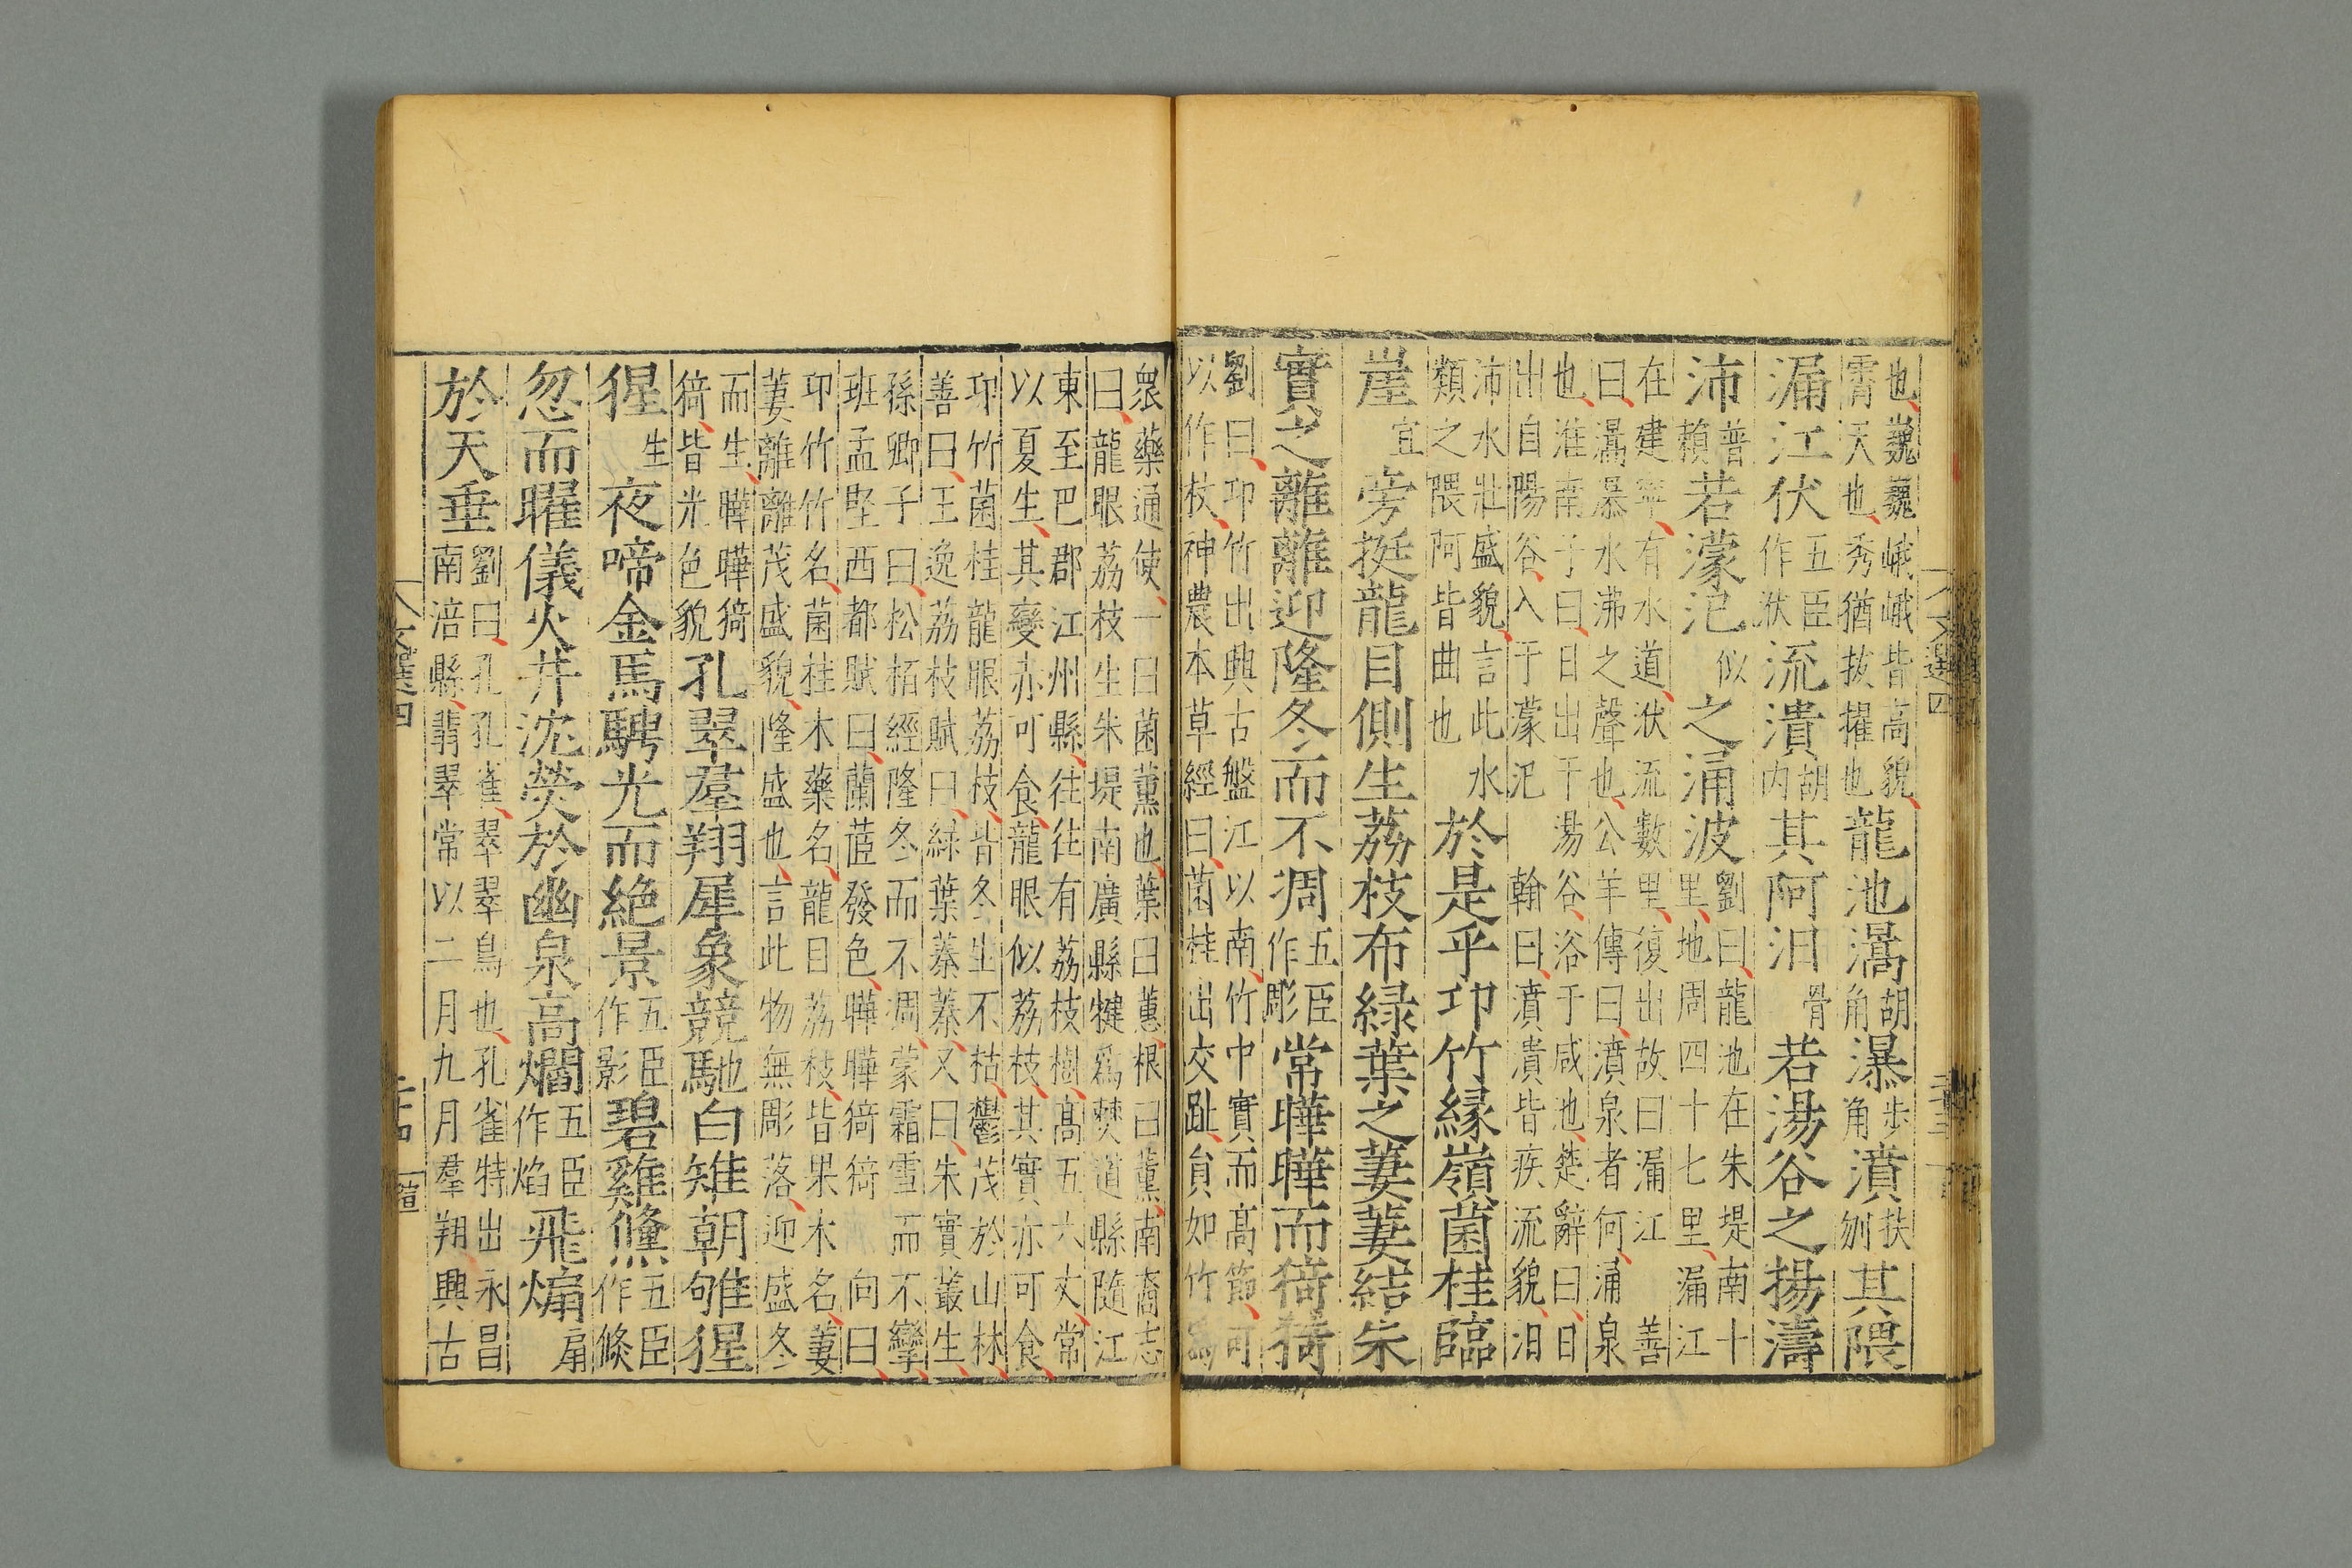 也巍巍峨峨皆高貌
霄天也秀猶拔擢也
龍池㵧胡角瀑步角濆扶刎其隈
漏江伏五臣作洑流潰胡内其阿汩骨若湯谷之揚濤
沛普賴若濛汜似之涌波
劉曰龍池在朱堤南十
里地周四十七里漏江
在建寧有水道洑流數里復出故曰漏江 善
曰㵧瀑水沸之聲也公羊傳曰濆泉者何涌泉
也淮南子曰日出于湯谷浴于咸池楚辭曰日
出自陽谷入于濛汜 翰曰濆潰皆疾流貌汩
沛水壯盛貌言此水
類之隈阿皆曲也
於是乎卭竹緣嶺菌桂臨
崖宜旁挺龍目側生荔枝布緑葉之萋萋結朱
實之離離迎隆冬而不凋五臣作彫常曄曄而猗猗
劉曰卭竹出興古盤江以南竹中實而髙節可
以作杖神農本草經曰菌桂出交趾貟如竹爲
衆藥通使一曰菌薫也葉曰蕙根曰薫南裔志
曰龍眼荔枝生朱堤南廣縣犍爲僰道縣隨江
東至巴郡江州縣往往有荔枝樹髙五六丈常
以夏生其變赤可食龍眼似荔枝其實亦可食
卭竹菌桂龍眼荔枝皆冬生不枯鬱茂於山林
善曰王逸荔枝賦曰緑葉蓁蓁又曰朱實叢生
孫卿子曰松栢經隆冬而不凋蒙霜雪而不變
班孟堅西都賦曰蘭茝發色曄曄猗猗 向曰
卭竹竹名菌桂木藥名龍目荔枝皆果木名萋
萋離離茂盛貌隆盛也言此物無彫落迎盛冬
而生曄曄猗
猗皆光色貌
孔翠羣翔犀象競馳白雉朝雊猩
猩生夜啼金馬騁光而絶景五臣作影碧雞儵五臣作倏
忽而曜儀火井沈熒於幽泉高爓五臣作焰飛煽扇
於天垂
劉曰孔孔雀翠翠鳥也孔雀特出永昌
南涪縣翡翠常以二月九月羣翔興古